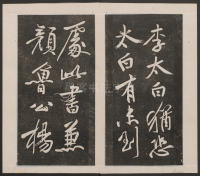 李太白猶恐
太白有未到
處此書兼
顏魯公楊